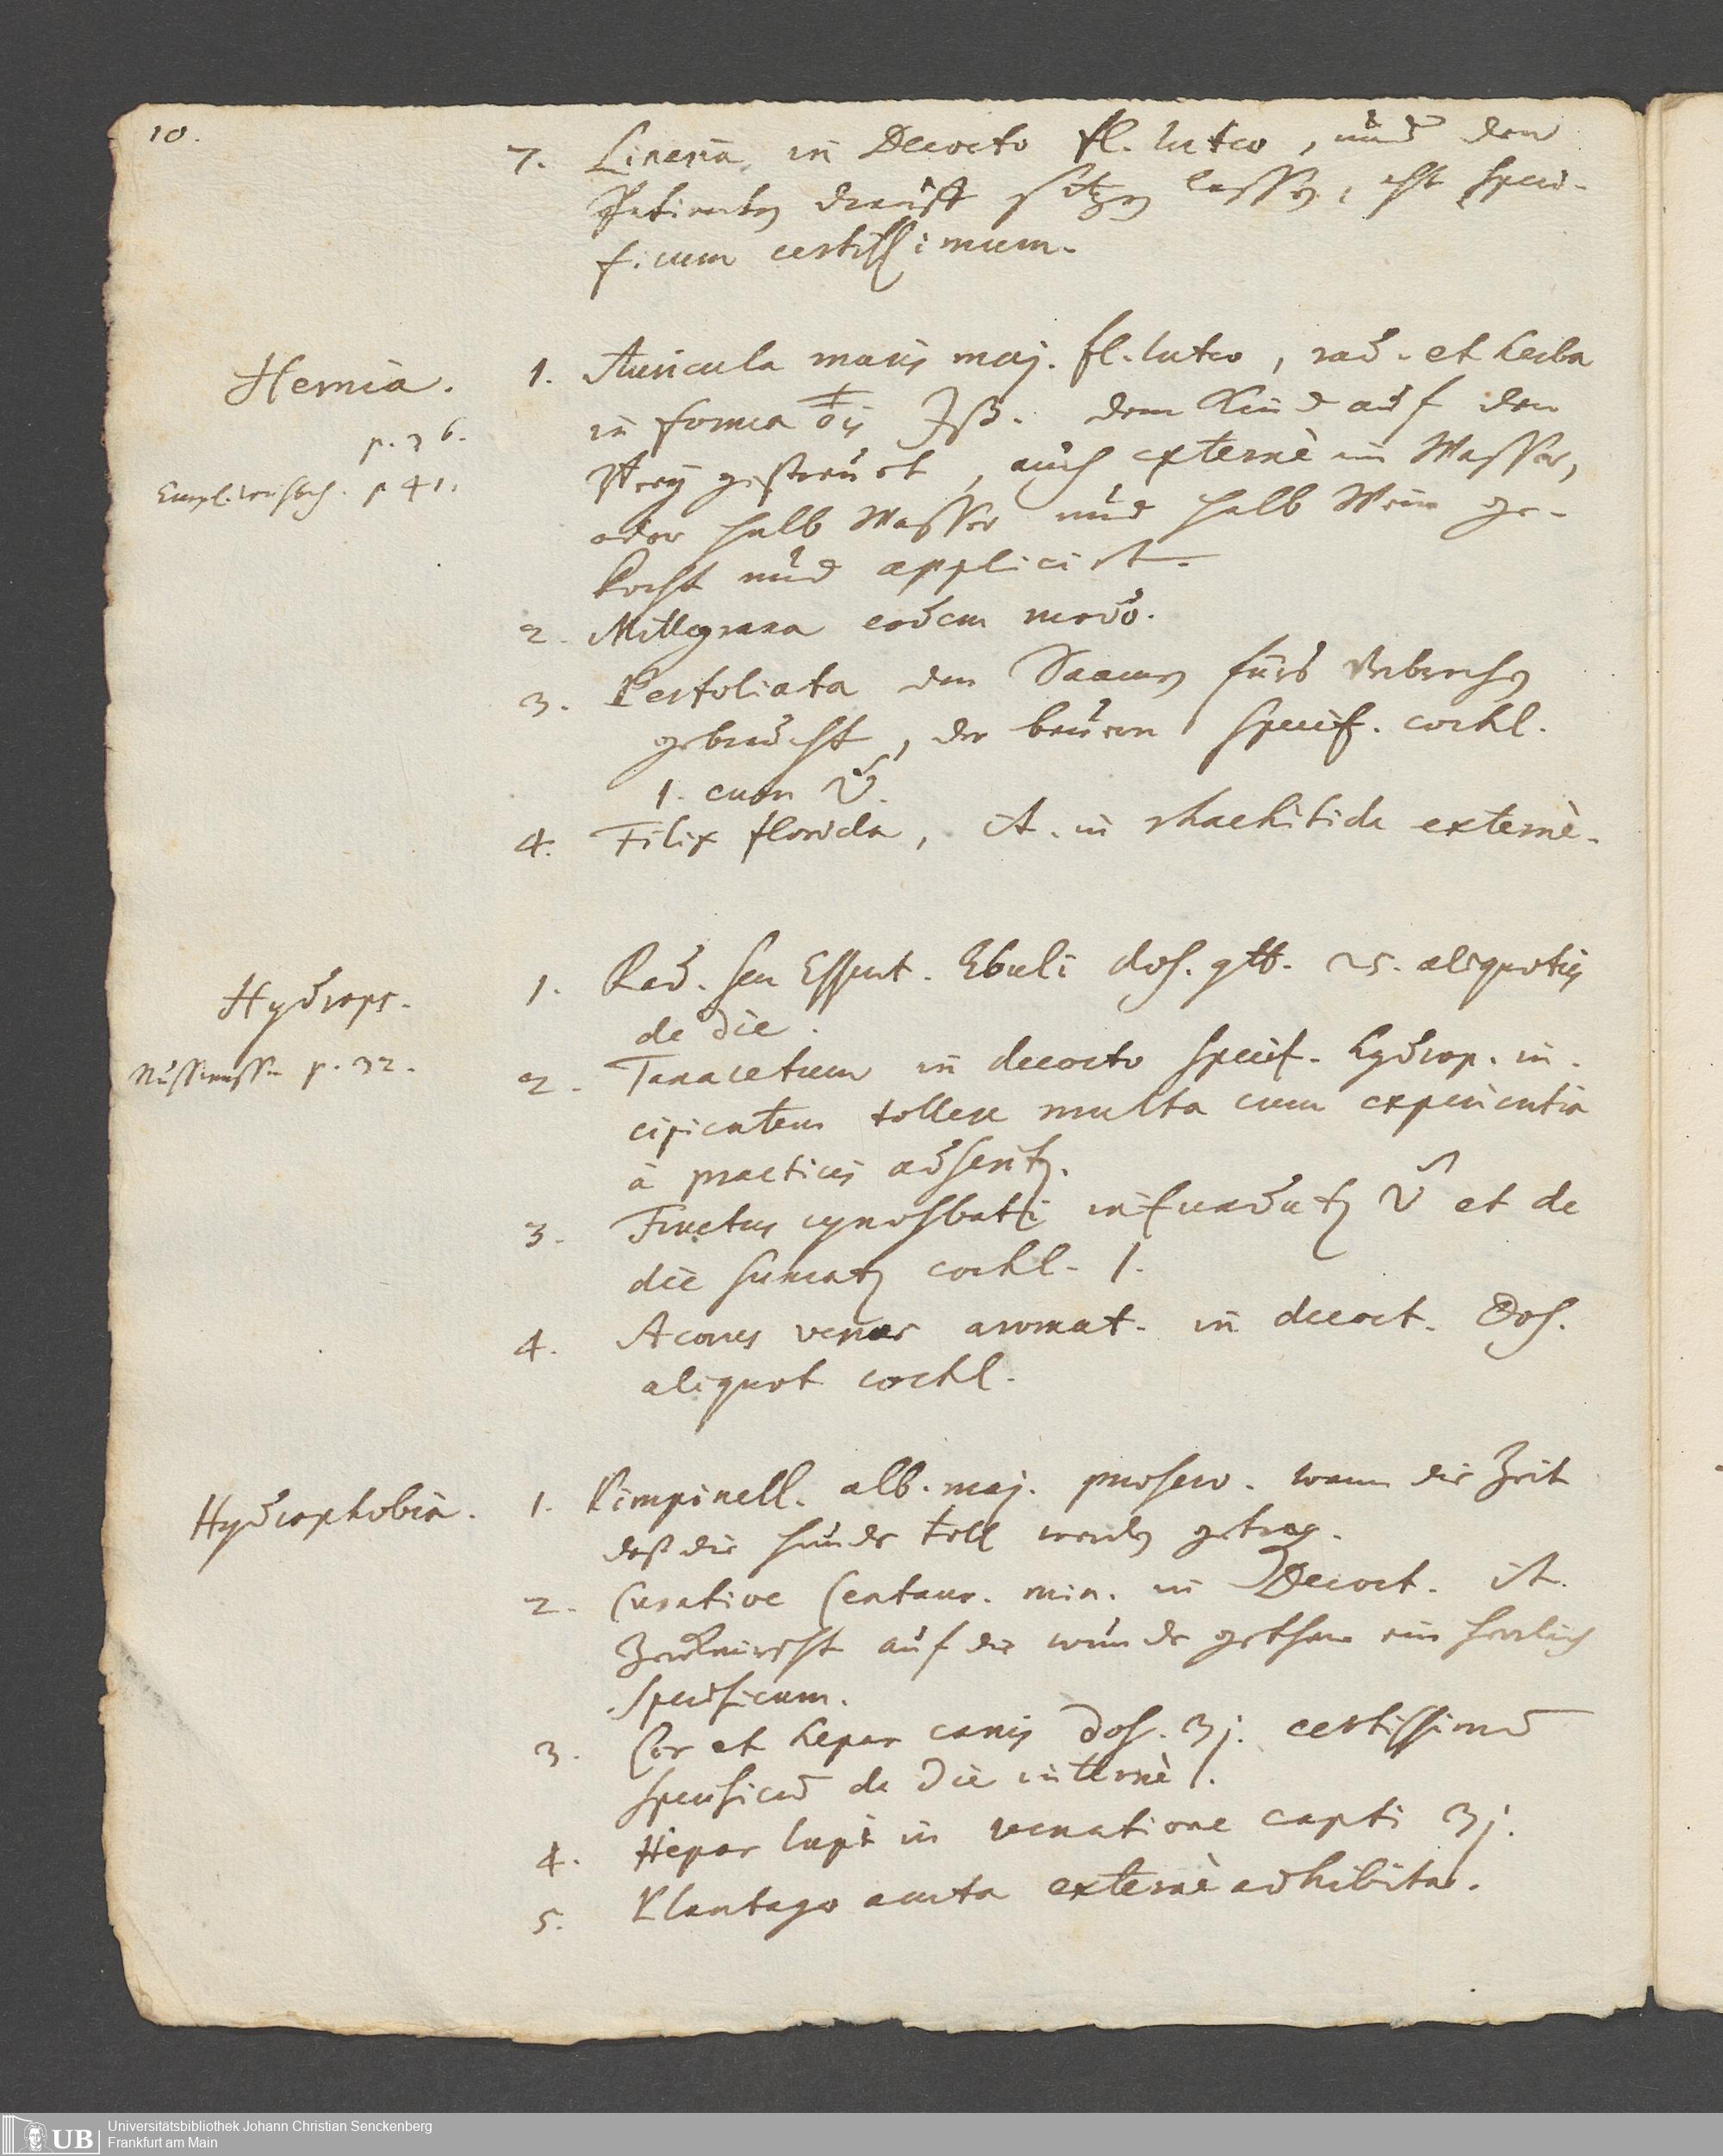 10.
7. Linaria in Decocto fl. luteo, und den
Patienten drauff sitzen lassen, est speci-
ficum certissimum.
Hernia.
p. 36.
p 41.
1. Auricula muris maj. fl. luteo, rad. et herba
in forma ʒß. dem Kind auf den
Brey gestreut, auch externè in Wasser,
oder halb Wasser und halb Wein ge-
kocht und applicirt.
2. Millegrana eodem modo.
3. Perfoliata den Saamen fürs
gebraucht, der specif. cochl.
1. cum V.
4. Filix florida, it. in rhachitide externè.
Hydrops.
p. 32.
1. Rad. seu Essent. Ebuli dos. gtt. 25. aliquoties
de die.
2. Tanacetum in decocto specif. hydrop. in-
cipientem tollere multa cum experientia
à practicis
3. Fructus cynosbati V et de
die cochl. 1.
4. Acorus verus aromat. in decoct. Dos.
aliquot cochl.
Hydrophobia.
1. Pimpinell. alb. maj. praeserv. wann die Zeit
daß die hunde toll werden getrag.
2. Curative Centaur. min. in Decoct. it.
zerknirscht auf die wunde gethan ein herrlich
specificum.
3. Cor et hepar canis Dos. ʒj. certissimu͞
specificu͞ de die internè.
4. Hepar lupi in venatione capti ʒj.
5. Plantago acuta externè adhibita.
Universitätsbibliothek Johann Christian Senckenberg
Frankfurt am Main
UB